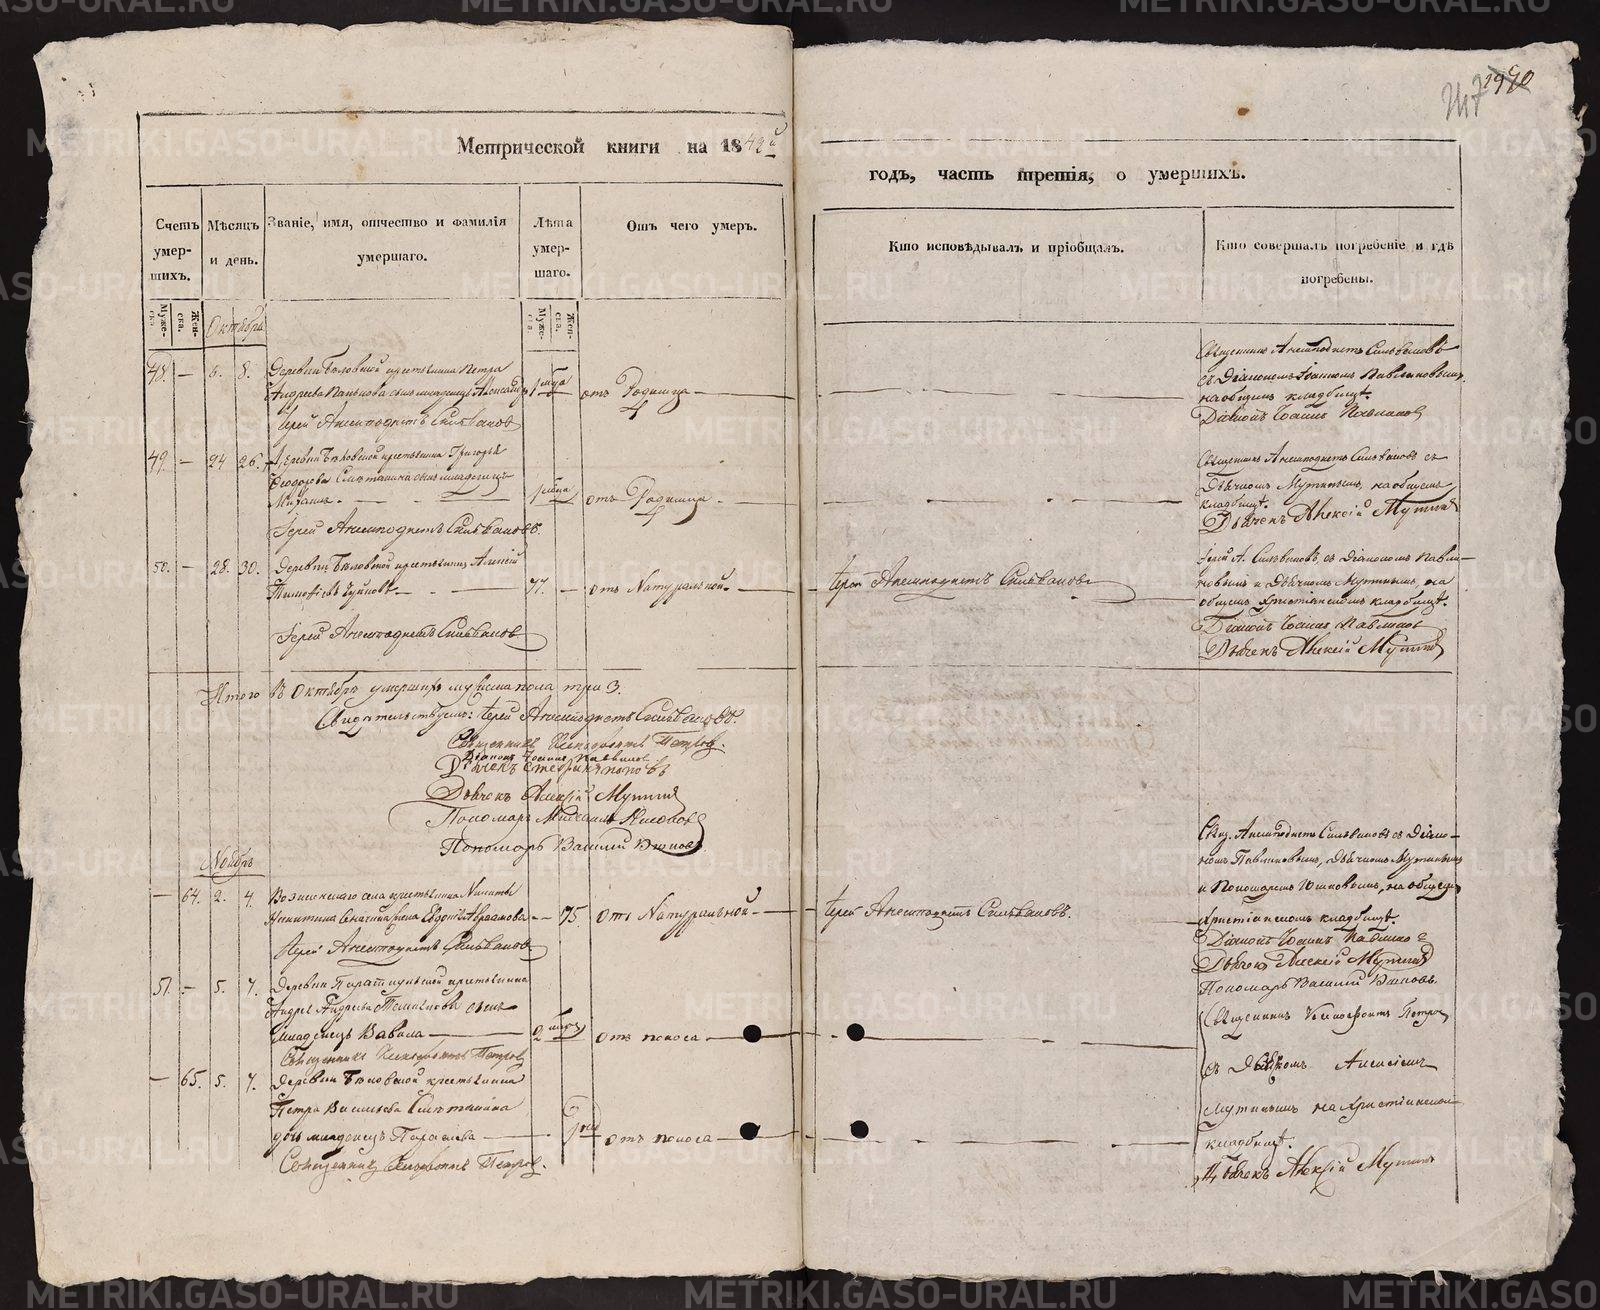 Метрической книги на 1842й
годъ, часть третія, о умершихъ.
Счетъ умершихъ.
Мѣсяцъ и день.
Званіе, имя, отчество и фамилія умершаго.
Лѣта умершаго.
Отъ чего умеръ.
Кто исповѣдывалъ и пріобщалъ.
Кто совершалъ погребеніе и гдѣ погребены.
Мужеска.
Женска.
Октябрь
Мужеска.
Женска.
48. — 6. 8. Деревни Бѣловской крестьянина Петра
Андреева сынъ младенецъ
отъ Родимца
Іерей Анемподистъ Сильвановъ
Священникъ Анемподистъ Сильвановъ
съ Діакономъ Іоанномъ Павлиновымъ,
на общемъ кладбищѣ.
Діаконъ Іоаннъ Павлиновъ
49. — 24 26. Деревни Бѣловской крестьянина Григорья
Ѳеодорова Сметанина сынъ младенецъ
Михаилъ.
отъ Родимца
Іерей Анемподистъ Сильвановъ.
Священникъ Анемподистъ Сильвановъ съ
Дьячкомъ Мутинымъ, на общемъ
кладбищѣ.
Дьячекъ Алексій Мутинъ
50. — 28. 30. Деревни Бѣловской крестьянинъ Алексій
Тимофѣевъ
77. — отъ Натуральной.
Іерей Анемподистъ Сильвановъ
Іерей Анемподистъ Сильвановъ
Іерей А. Сильвановъ, съ Діакономъ Павли-
новымъ и Дьячкомъ Мутинымъ, на
общемъ Христіанскомъ кладбищѣ.
Діаконъ Іоаннъ Павлиновъ
Дьячекъ Алексій Мутинъ
Итого въ Октябрѣ умершихъ мужеска пола три 3.
Свидетельствуемъ: Іерей Анемподистъ Сильвановъ.
Священникъ Ксенофонтъ Петровъ.
Діаконъ Іоаннъ Павлиновъ
Дьячекъ Стефанъ Поповъ
Дьячекъ Алексій Мутинъ
Пономарь Михаилъ
Пономарь Василій Юшковъ.
Ноябрь
— 64. 2. 4. Вознесенскаго села крестьянина Никиты
Никитина жена Евдокія Абрамова
— 75. отъ Натуральной
Іерей Анемподистъ Сильвановъ.
Іерей Анемподистъ Сильвановъ.
Свящ. Анемподистъ Сильвановъ съ Діако-
номъ Павлиновымъ, Дьячкомъ Мутинымъ
и Пономаремъ Юшковымъ, на общемъ
Христіанскомъ кладбищѣ.
Діаконъ Іоаннъ Павлиновъ
Дьячекъ Алексій Мутинъ
Пономарь Василій Юшковъ.
51. — 5. 7. Деревни крестьянина
Андрея Андреева сынъ
младенецъ Вавила
отъ поноса
Священникъ Ксенофонтъ Петровъ
Священникъ Ксенофонтъ Петровъ
съ Дьячкомъ Алексіемъ
Мутинымъ на Христіанскомъ
кладбищѣ.
Дьячекъ Алексій Мутинъ
— 65. 5. 7. Деревни Бѣловской крестьянина
Петра Васильева Сметанина
дочь младенецъ Параскева
отъ поноса
Священникъ Ксенофонтъ Петровъ.
METRIKI.GASO-URAL.RU